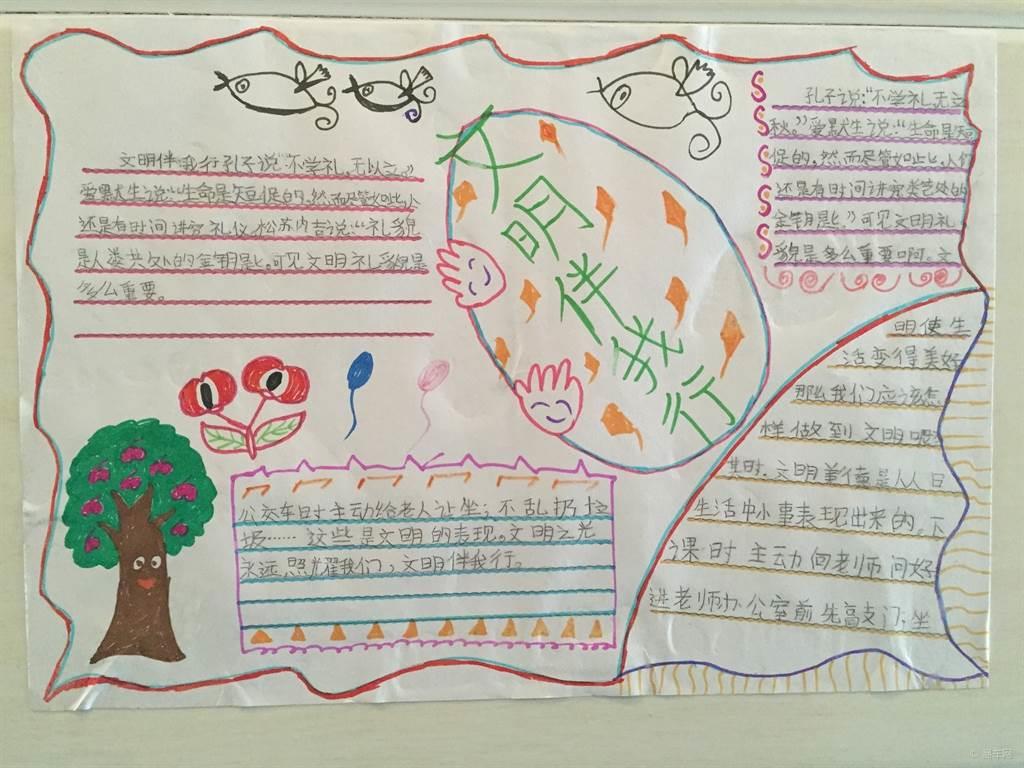 文明伴我行
文明伴我行孔子说"不学礼,无以立。"
爱默生说:"生命是短促的,然而尽管如此,人
还是有时间讲究礼仪,松苏内吉说:"礼貌
是人类共处的金钥匙。可见文明礼貌是
多么重要。
孔子说:"不学礼,无立
秋。"爱默生说:"生命是短
促的,然而尽管如此,人们
还是有时间讲究类处的
金钥匙。"可见文明礼
貌是多么重要啊。文
明使生
活变得美好
那么我们应该怎
样做到文明呢?
其时,文明美德是人人日
生活中小事表现出来的,下
课时主动向老师问好
进老师办公室前先高支门;坐
公交车时主动给老人让坐;不乱扔垃
圾……这些是文明的表现。文明之光
永远照耀我们,文明伴我行。